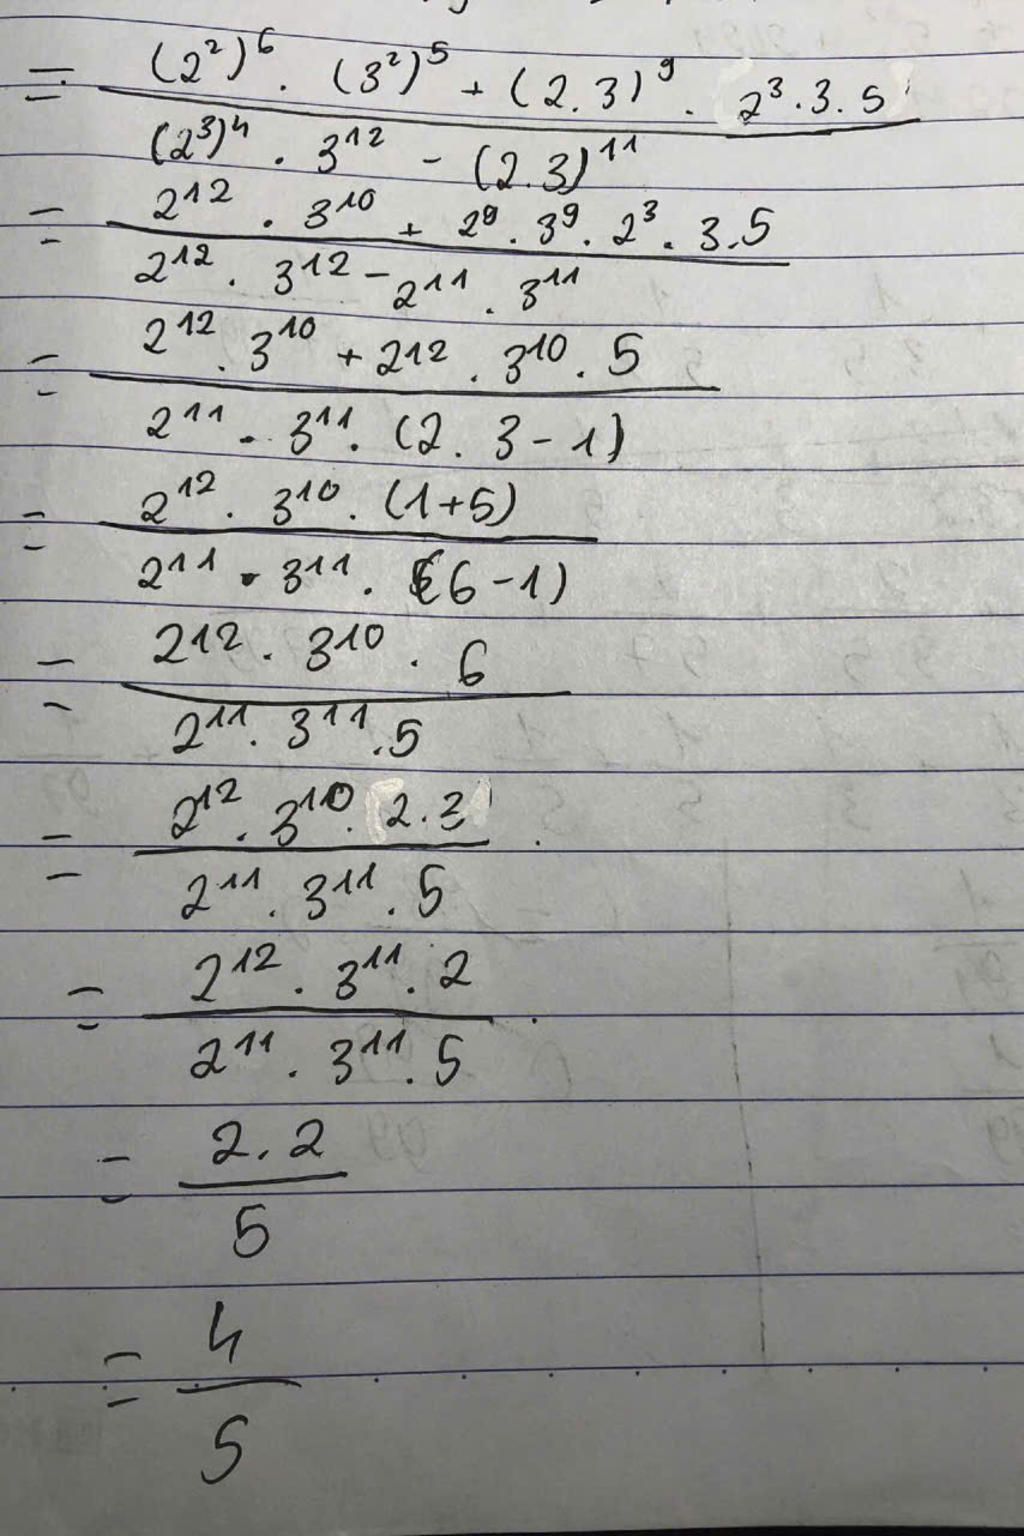 = (2²)⁶ . (3²)⁵ + (2.3)⁹ . 2³.3.5
(2³)⁴ . 3¹² - (2.3)¹¹
= 2¹² . 3¹⁰ + 2⁹ . 3⁹ . 2³ . 3.5
2¹² . 3¹² - 2¹¹ . 3¹¹
= 2¹² . 3¹⁰ + 2¹² . 3¹⁰ . 5
2¹¹ . 3¹¹ . (2 . 3 - 1)
= 2¹² . 3¹⁰ . (1+5)
2¹¹ . 3¹¹ . (6-1)
= 2¹² . 3¹⁰ . 6
2¹¹ . 3¹¹ . 5
= 2¹² . 3¹⁰ . 2.3
2¹¹ . 3¹¹ . 5
= 2¹² . 3¹¹ . 2
2¹¹ . 3¹¹ . 5
= 2.2
5
= 4
5